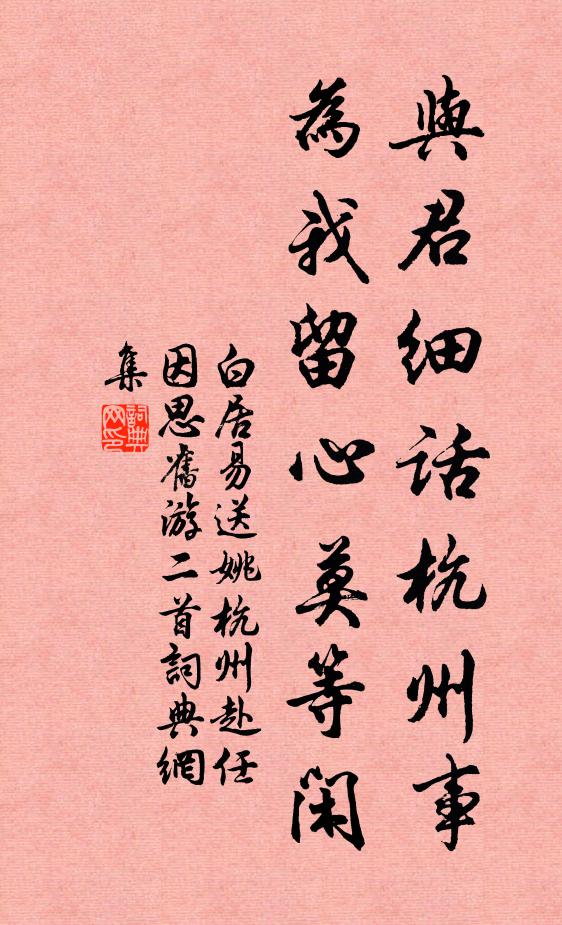 與君細話杭州事
為我留心莫等閑
白居易送姚杭州赴任
因思舊游二首詞典網
集
詞典网印